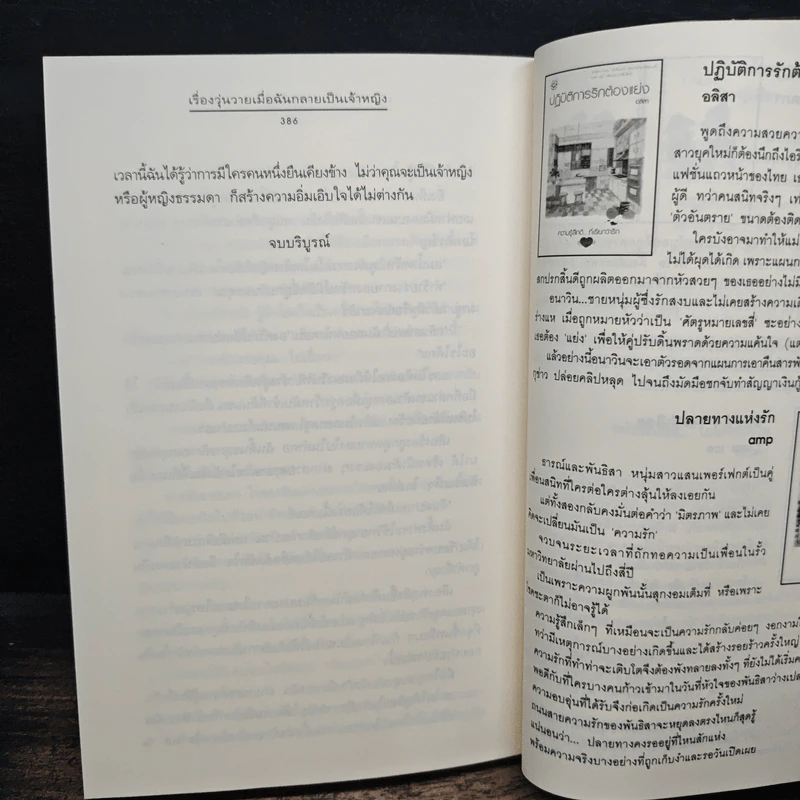 เรื่องวุ่นวายเมื่อฉันกลายเป็นเจ้าหญิง
386
เวลานี้ฉันได้รู้ว่าการมีใครคนหนึ่งยืนเคียงข้าง ไม่ว่าคุณจะเป็นเจ้าหญิง
หรือผู้หญิงธรรมดา ก็สร้างความอิ่มเอิบใจได้ไม่ต่างกัน
จบบริบูรณ์
ปฏิบัติการรักต้องแย่ง
อลิสา
ความรู้สึกดี... ที่เรียกว่ารัก
ปฏิบัติการรักต้
อลิสา
พูดถึงความสวยความ
สาวยุคใหม่ก็ต้องนึกถึงไอริ
แฟชั่นแถวหน้าของไทย เธ
ผู้ดี ทว่าคนสนิทจริงๆ เท
'ตัวอันตราย' ขนาดต้องติด
ใครบังอาจมาทำให้แม่
ไม่ได้ผุดได้เกิด เพราะแผนก
สกปรกสิ้นดีถูกผลิตออกมาจากหัวสวยๆ ของเธออย่างไม่มี
อนาวิน...ชายหนุ่มผู้ซึ่งรักสงบและไม่เคยสร้างความเดื
ร่างแห เมื่อถูกหมายหัวว่าเป็น 'ศัตรูหมายเลขสี่' ซะอย่าง
เธอต้อง 'แย่ง' เพื่อให้คู่ปรับดิ้นพราดด้วยความแค้นใจ (แต่
แล้วอย่างนี้อนาวินจะเอาตัวรอดจากแผนการเอาคืนสารพั
กุข่าว ปล่อยคลิปหลุด ไปจนถึงมัดมือชกจับทำสัญญาเงินกู้
ปลายทางแห่งรัก
amp
ธารณ์และพันธิสา หนุ่มสาวแสนเพอร์เฟกต์เป็นคู่
เพื่อนสนิทที่ใครต่อใครต่างลุ้นให้ลงเอยกัน
แต่ทั้งสองกลับคงมั่นต่อคำว่า 'มิตรภาพ' และไม่เคย
คิดจะเปลี่ยนมันเป็น 'ความรัก'
จวบจนระยะเวลาที่ถักทอความเป็นเพื่อนในรั้ว
มหาวิทยาลัยผ่านไปถึงสี่ปี
เป็นเพราะความผูกพันนั้นสุกงอมเต็มที่ หรือเพราะ
โชคชะตาก็ไม่อาจรู้ได้
ความรู้สึกเล็กๆ ที่เหมือนจะเป็นความรักกลับค่อยๆ งอกงาม
ทว่ามีเหตุการณ์บางอย่างเกิดขึ้นและได้สร้างรอยร้าวครั้งใหญ่
ความรักที่ทำท่าจะเติบโตจึงต้องพังทลายลงทั้งๆ ที่ยังไม่ได้เริ่ม
พอดีกับที่ใครบางคนก้าวเข้ามาในวันที่หัวใจของพันธิสาว่างเปล่
ความอบอุ่นที่ได้รับจึงก่อเกิดเป็นความรักครั้งใหม่
ถนนสายความรักของพันธิสาจะหยุดลงตรงไหนก็สุดรู้
แน่นอนว่า... ปลายทางคงรออยู่ที่ไหนสักแห่ง
พร้อมความจริงบางอย่างที่ถูกเก็บงำและรอวันเปิดเผย